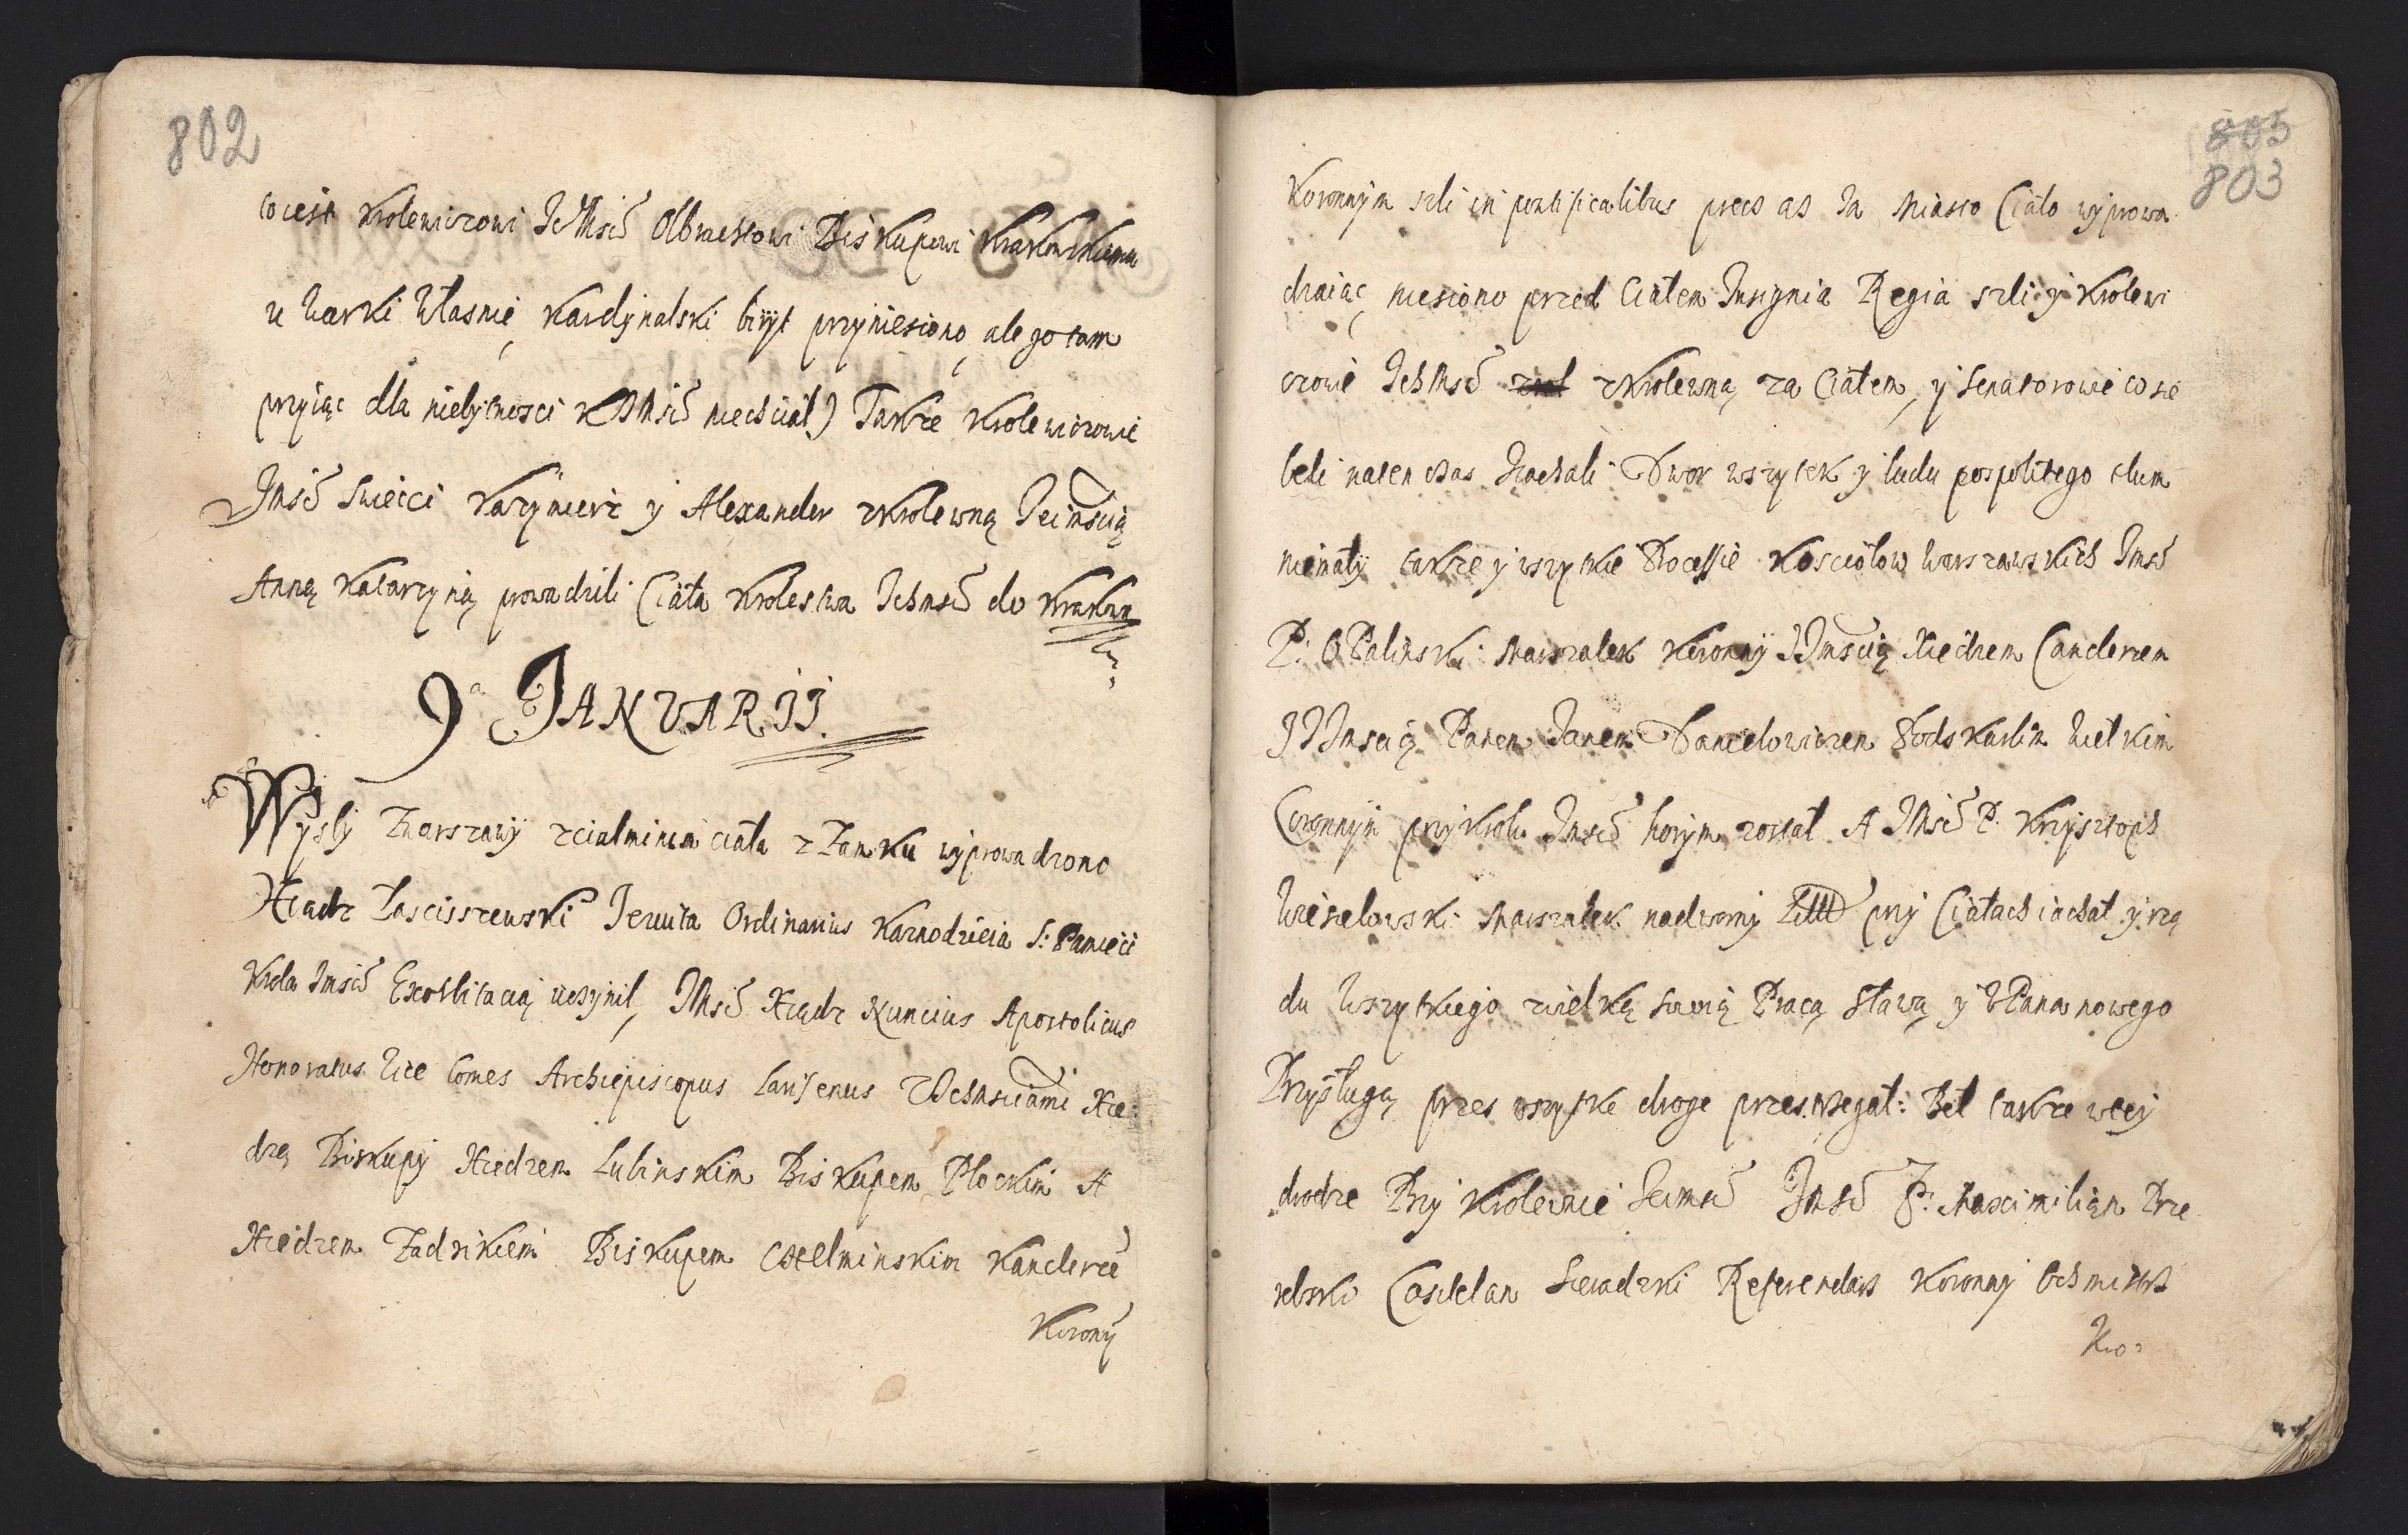 802
co iest Krolewiczowi JeMsci Olbrachtowi Biskupowi Krakowskiemu
u Warki Własnię Kardynalski biryt przyniesiono, ale go tam
przyiąc dla niebytnosci KJMsci niechciał) Takze Krolewicowie
Jmsci Swieccÿ Kazymierz y Alexander zKrolewną Jeimscią
Anną Katarzyną prowadzili Ciała Krolestwa Ichmsci do Krakwa
9a JANUARII.
Wysly Zwarszawÿ zciałmi nim ciała z Zamku wyprowadzono
Xiadz Zascisszewski Jezuita Ordinarius Kaznodzieia S: Pamięci
Krola Jmsci Exorbitacią uczynil, JMsci Xiądz Nuncius Apostolicus
Honoratus Vice Comes Archiepiscopus Larissenus ZIchMsciami Xie:
dzą Biskupÿ Xiedzem Lubinskim Biskupem Płockim A
Xiedzem Zadzikiem Biskupem Chelminskim Kanclerze
Koronÿ
805
803
Koronnym szli in pontificalibus precz as za Miasto Ciało wyprowa
dzaiąc niesiono przed Ciałem Insignia Regia szli y Krolewi
czowie IchMsci zKrolewną za Ciałem, y Senatorowie co sie
beli naten czas Ziachali Dwor wszytek y ludu pospolitego tlum
niemałÿ takze y wszytkie Processie Kosciołow Warszawskich Jmsc
P: OPalinski Marszalek Koronnÿ ZJJmscią Xiedzem Canclerzem
JJmscią Panem Janem Danielowiczem Podskarbim Wielkim
Coronnym przÿ Krolu Jmsci horÿm został A JMsci P. Krzysztoph
Wiesielowski Marszalek nadwornÿ Litt przÿ Ciałach iachał y rzą
du Wszytkiego zwielką swoią Pracą Sławą y VPana nowego
Przÿsługą przes wszytke droge przestrzegał: Beł takze wteÿ
drodze Przÿ Krolewnie Jeimsci Jmsci P: Maximilian Prze
rebski Casztelan Sieradzki Referendarz Koronny Ochmistrz
Kro: